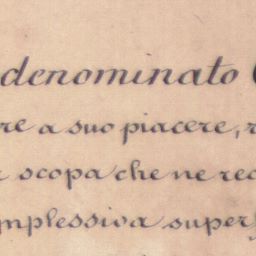 denominato
re a suo piacere, r
scopa che ne rec
mplessiva super